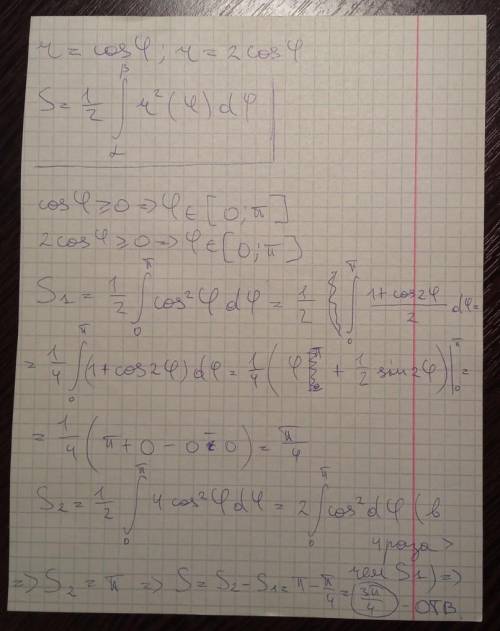 r = cosφ ; r = 2cosφ
S = 1/2 ∫_α^β r²(φ)dφ
cosφ ≥ 0 => φ ∈ [0; π]
2cosφ ≥ 0 => φ ∈ [0; π]
S₁ = 1/2 ∫_0^π cos²φdφ = 1/2 ∫_0^π (1+cos2φ)/2 dφ =
= 1/4 ∫_0^π (1+cos2φ)dφ = 1/4 (φ + 1/2 sin2φ)|_0^π =
= 1/4 (π + 0 - 0 - 0) = π/4
S₂ = 1/2 ∫_0^π 4cos²φdφ = 2∫_0^π cos²dφ (в
4 раза >
чем S₁) =>
=> S₂ = π => S = S₂ - S₁ = π - π/4 = 3π/4 - отв.